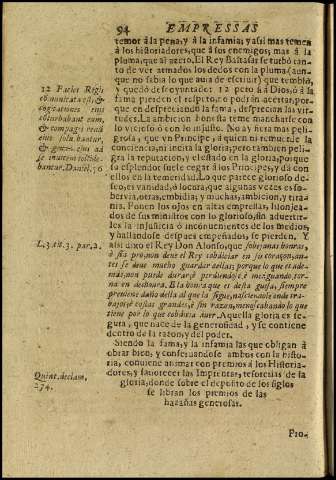 94 EMPRESSAS
temor à la pena, y à la infamia; y assi mas temen
à los historiadores, que à sus enemigos; mas à la
pluma, que al azero. El Rey Baltasar se turbò tan-
to de ver armados los dedos con la pluma (aun-
que no sabia lo que avia de escriuir) que temblò,
y quedò descoyuntado: 12 pero si à Dios, ò à la
fama pierden el respeto, no podràn acertar, por-
que en despreciando la fama, desprecian las vir-
tudes. La ambicion honesta teme mancharse con
lo vicioso ò con lo injusto. No ay fiera mas peli-
grosa, que vn Principe, à quien ni remuerde la
conciencia, ni incita la gloria; pero tambien peli-
gra la reputacion, y el estado en la gloria, porque
su esplendor suele cegar à los Principes, y dà con
ellos en la temeridad. Lo que parece glorioso de-
seo, es vanidad, ò locura, que algunas vezes es so-
bervia, otras, embidia, y muchas, ambicion, y tira-
nia. Ponen los ojos en altas empressas, lisonjea-
dos de sus ministros con lo glorioso, sin advertir-
les la injusticia ò inconuenientes de los medios,
y hallandose despues empeñados, se pierden. Y
assi dixo el Rey Don Alonso, que sobejanas honras,
è sin pro, non deue el Rey cobdiciar en su coraçon, an-
tes se deue mucho guardar dellas; porque lo que es ade-
màs, non puede durar, è perdiendose, è menguando, tor-
na en deshonra. E la honra que es desta guisa, siempre
preuiene daño della al que la sigue, nasciendole ende tra-
bajos, è costas grandes, è sin razon, menoscabando lo que
tiene por lo que cobdicia auer. Aquella gloria es se-
gura, que nace de la generosidad, y se contiene
dentro de la razon, y del poder.
Siendo la fama, y la infamia las que obligan à
obrar bien, y conseruandose ambos con la histo-
ria, conuiene animar con premios à los Historia-
dores, y fauorecer las Imprentas, tesorerias de la
gloria, donde sobre el deposito de los siglos
se libran los premios de las
hazañas generosas.
Pro-
12 Facies Regis
commutata est, &
cogitationes eius
conturbabant eum,
& compages renum
eius solvebantur,
& genua eius ad
se inuicem collide-
bantur. Daniel, 5. 6
L. 3. tit. 3. par. 2.
Quint. declam.
274.